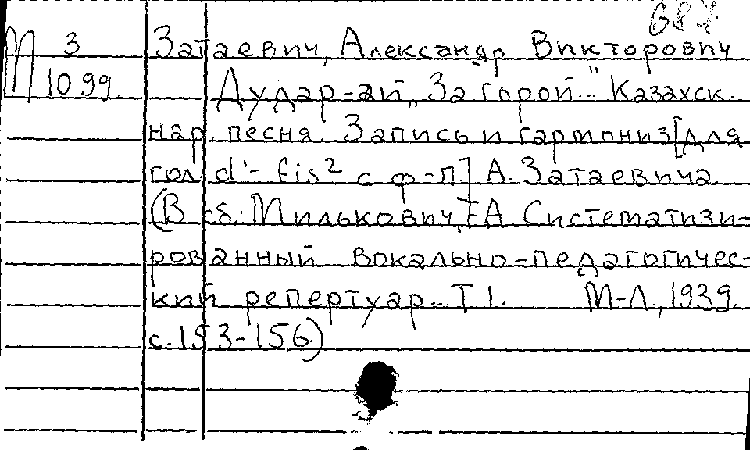 687
М 3 Затаевич, Александр Викторович
1099. Дудар-ай „За горой..." Казахск.
нар. песня. Запись и гармониз[для
гол. d'- fis² с ф-п] А. Затаевича
(В сб. Милькович, Е А Систематизи-
рованный вокально-педагогичес-
кий репертуар.. Т I. М-Л, 1939.
с. 153-156)